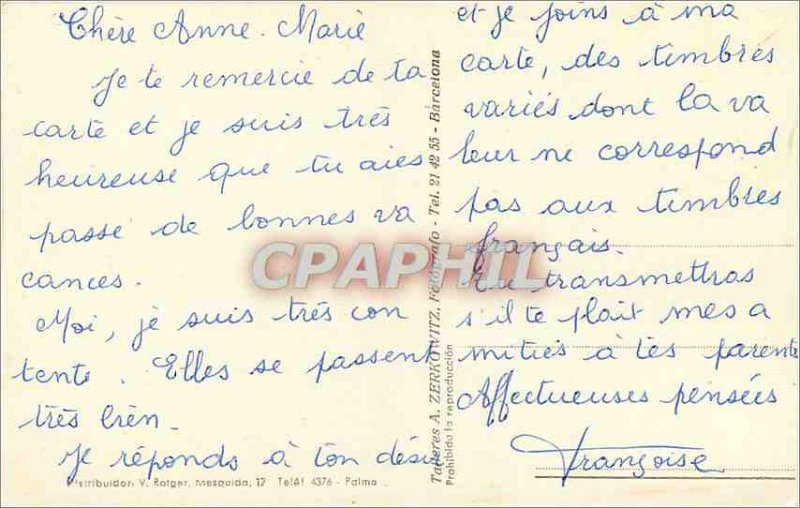 Chère Anne-Marie
Je te remercie de ta
carte et je suis très
heureuse que tu aies
passé de bonnes va
cances.
Moi, je suis très con
tente. Elles se passent
très bien.
Je réponds à ton désir
et je joins à ma
carte, des timbres
variés dont la va
leur ne correspond
pas aux timbres
français.
Tu transmettras
s'il te plait mes a
mitiés à tes parents
Affectueuses pensées
Françoise
Talleres A. ZERKOWITZ, Fotógrafo - Tel. 21 42 55 - Barcelona
Prohibida la reproducción
Distribuidor: V. Rotger, Mesquida, 12 Teléf. 4376 - Palma
CPAPHIL